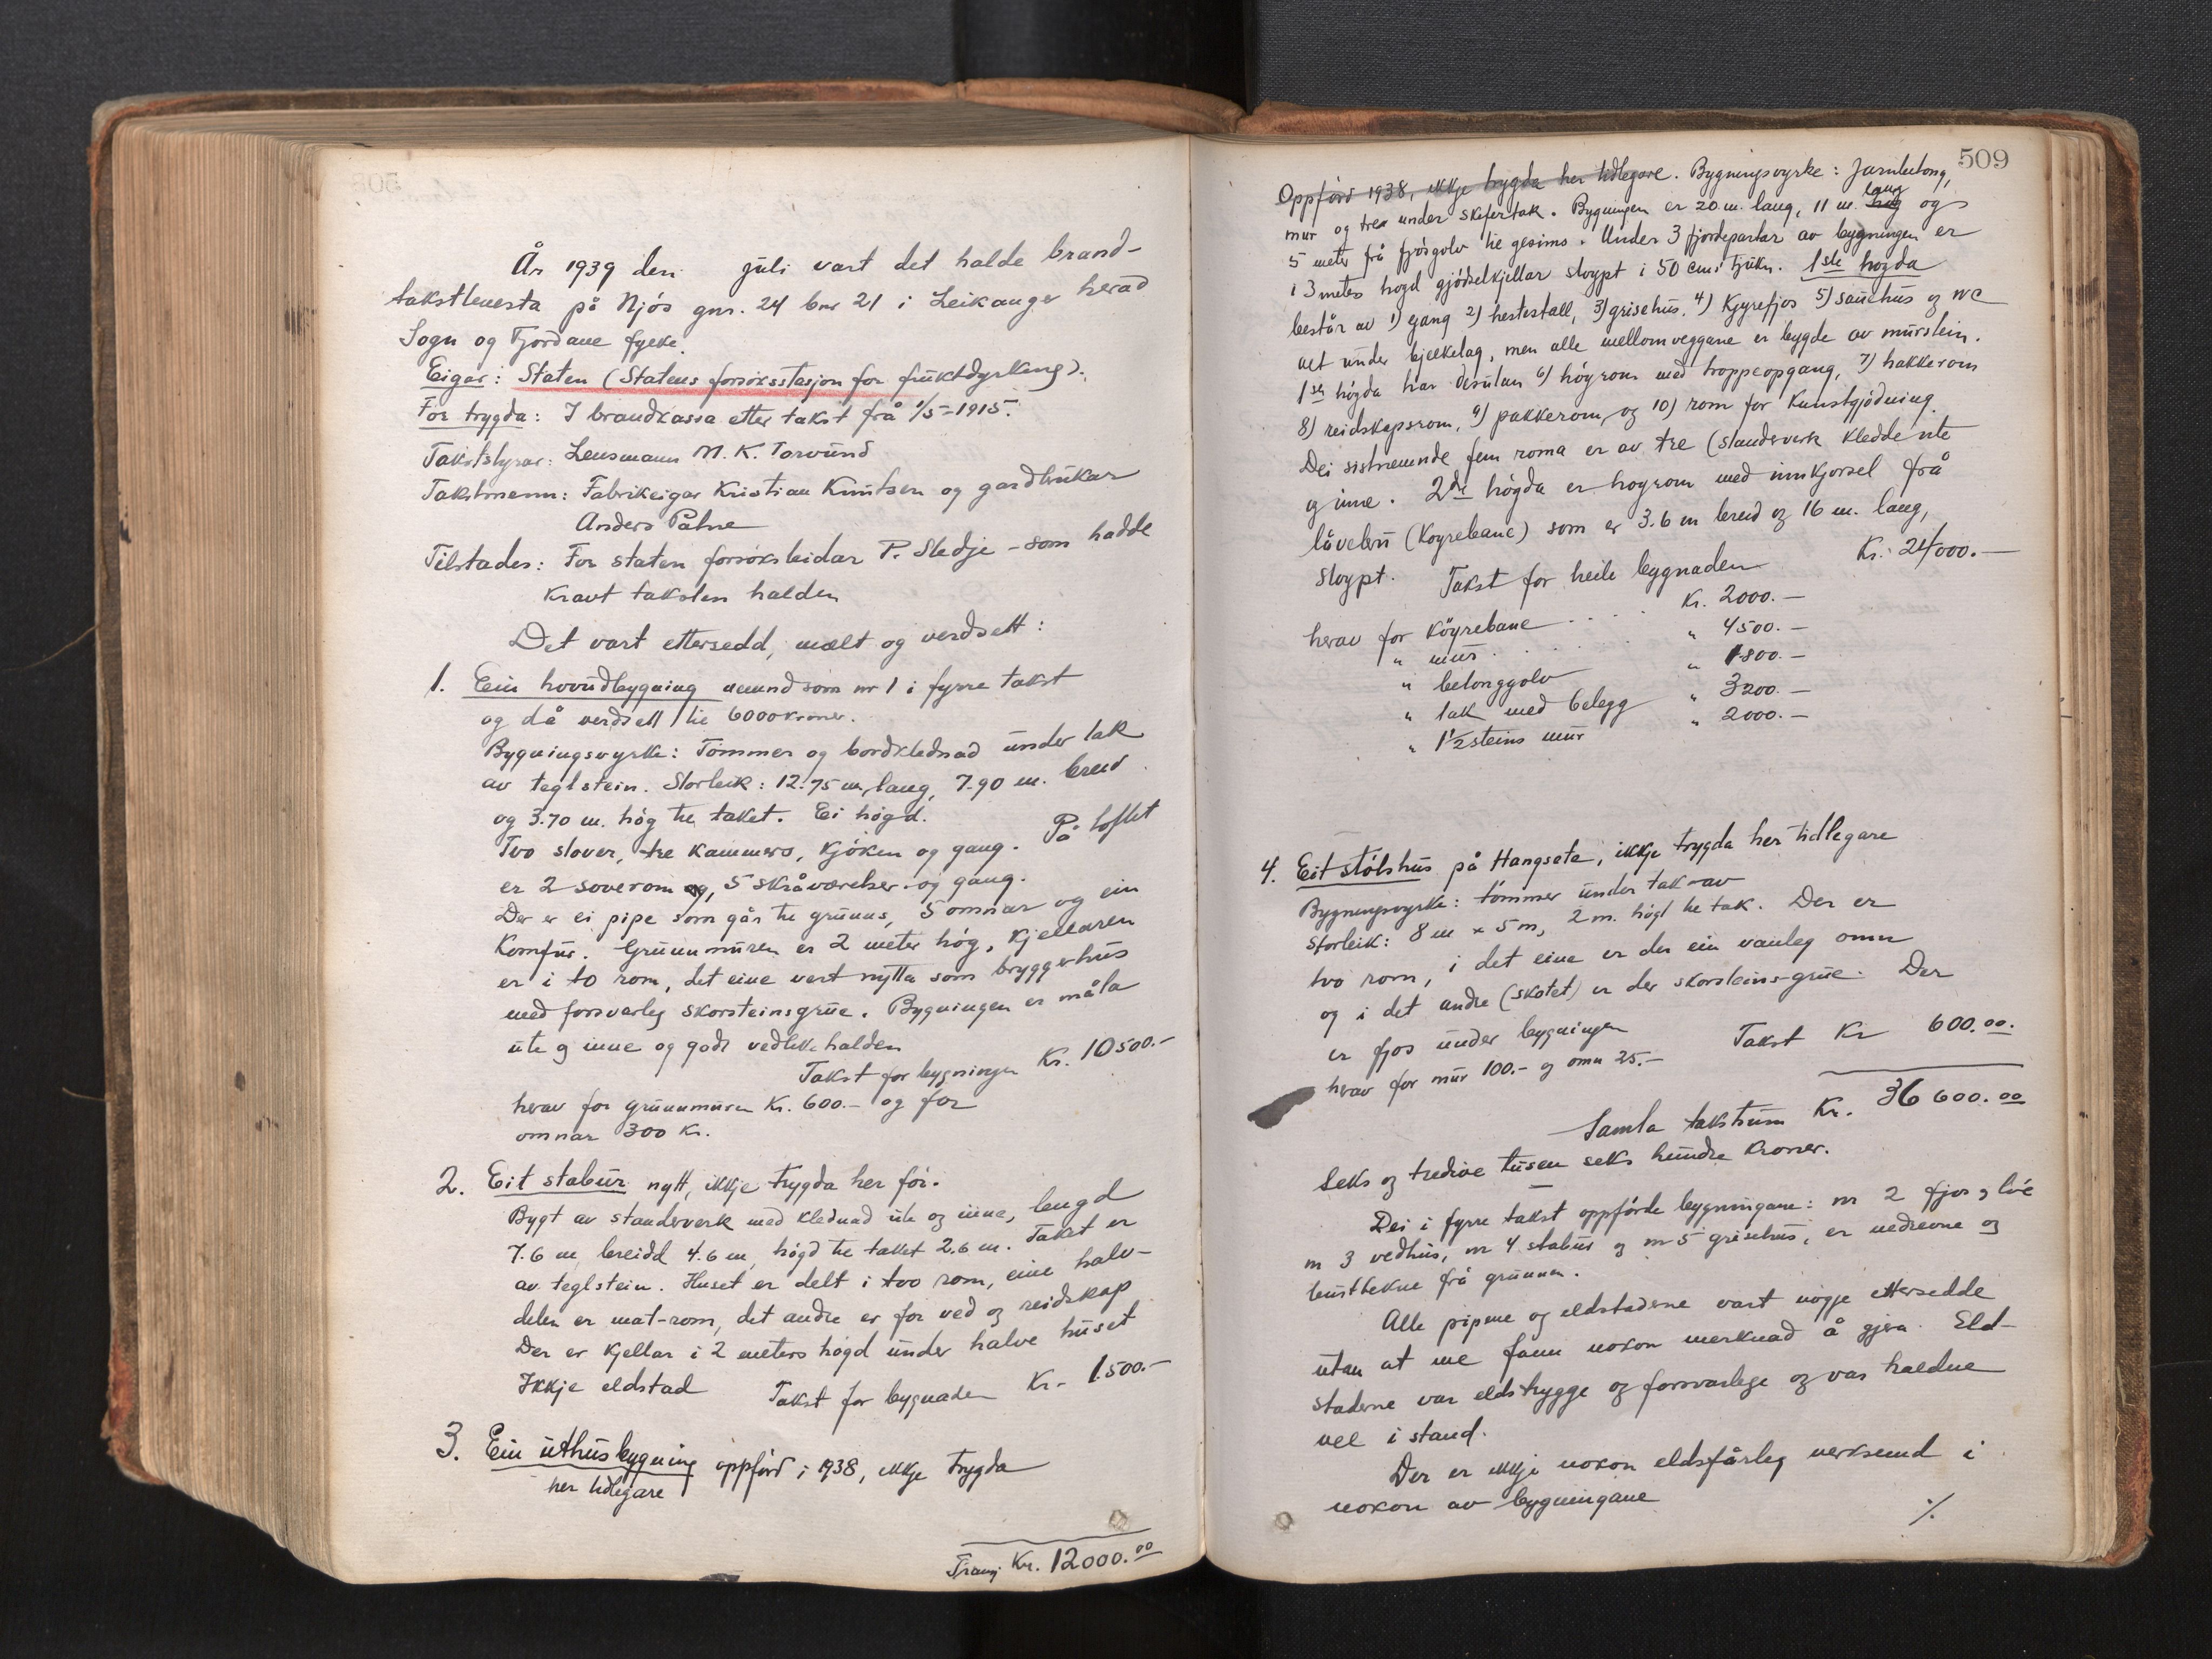 År 1939 den juli vart det halde brand-
takstleuesta på Njøs gnr. 24 bnr 21 i Leikanger herad
Sogn og Fjordane fylke.
Eigar: Staten (Statens forsøksstasjon for fruktdyrking).
Før trygda: I brandkassa etter takst frå 1/5-1915.
Takstslyrar: Lensmann M. K. Torvund
Takstmenn: Fabrikeigar Kristian Knutsen og gardbrukar
Anders Påhre
Tilstades: For staten forsøksleidar P. Stedje - som hadde
kravt taksten halden
Det vart ettersedd, mælt og verdsett:
1. Ein hovudbygning nemnd som nr 1 i fyrre takst
og då verdsett til 6000 kroner.
Bygningsvyrke: Tømmer og bordklednad under tak
av teglstein. Storleik: 12.75 m. lang, 7.90 m. breid
og 3.70 m. høg til taket. Ei høgd.
Tvo stover, tre kammers, kjøken og gang. På loftet
er 2 soverom og 5 skråværelser og gang.
Der er ei pipe som går til grunns, 5 omnar og ein
komfur. Grunnmuren er 2 meter høg, kjellaren
er i to rom, det eine vert nytta som bryggerhus
med forsvarleg skorsteinsgrue. Bygningen er måla
ute og inne og godt vedlikehalden
Takst for bygningen Kr. 10500.-
herav for grunnmuren Kr. 600.- og for
omnar 300 kr.
2. Eit stabur nytt, ikkje trygda her før.
Bygt av standerverk med klednad ute og inne, lengd
7.6 m, breidd 4.6 m, høgd til taket 2.6 m. Taket er
av teglstein. Huset er delt i tvo rom, eine halv-
delen er mat-rom, det andre er for ved og reidskap
Der er kjellar i 2 meters høgd under halve huset
Ikkje eldstad Takst for bygnaden Kr. 1500.-
3. Ein uthusbygning oppførd i 1938, ikkje trygda
her tidlegare
Transj. Kr. 12000.00
509
Oppførd 1938, ikkje trygda her tidlegare. Bygningsvyrke: Jarnbetong,
mur og tre under skifertak. Bygningen er 20 m. lang, 11 m. høg lang og
5 meter frå fjøsgolv til gesims. Under 3 fjordepartar av bygningen er
i 3 meters høgd gjødselkjellar støypt i 50 cm's tjukn. 1ste høgda
består av 1) gang 2) hestestall, 3) grisehus. 4) Kyrefjos 5) sauehus og WC
alt under bjelkelag, men alle mellomveggane er bygde av murstein.
1ste høgda har desutan 6) høyrom med trappeopgang, 7) hakkerom
8) reidskapsrom, 9) pakkerom, og 10) rom for kunstgjødning.
Dei sistnemnde fem roma er av tre (standerverk kledde ute
og inne. 2dre høgda er høyrom med innkjørsel frå
låvebru (køyrebane) som er 3.6 m breid og 16 m. lang,
støypt. Takst for heile bygnaden Kr. 24000.-
herav for køyrebane . . . Kr. 2000.-
" mur . . . " 4500.-
" betonggolv " 1800.-
" tak med belegg " 3200.-
" 1 1/2 steins mur " 2000.-
4. Eit stølshus på Hangsete, ikkje trygda her tidlegare
Bygningsvyrke: tømmer under tak av
Storleik: 8 m x 5 m, 2 m. høgd til tak. Der er
tvo rom, i det eine er der ein vanleg omn
og i det andre (skotet) er der skorsteins-grue. Der
er fjos under bygningen Takst Kr 600.00.
herav for mur 100.- og omn 25.-
Samla takstsum Kr. 36600.00
Seks og tredive tusen seks hundre kroner.
Dei i fyrre takst oppførde bygningane: nr 2 fjos og løe
nr 3 vedhus, nr 4 stabur og nr 5 grisehus, er nedrevne og
burttekne frå grunnen.
Alle pipene og eldstaderne vart nøgje ettersedde
utan at me fann nokon merknad å gjera. Eld-
staderne var eldstrygge og forsvarlege og var haldne
vel i stand.
Der er ikkje nokon eldsfårleg verksemd i
nokon av bygningane
./.